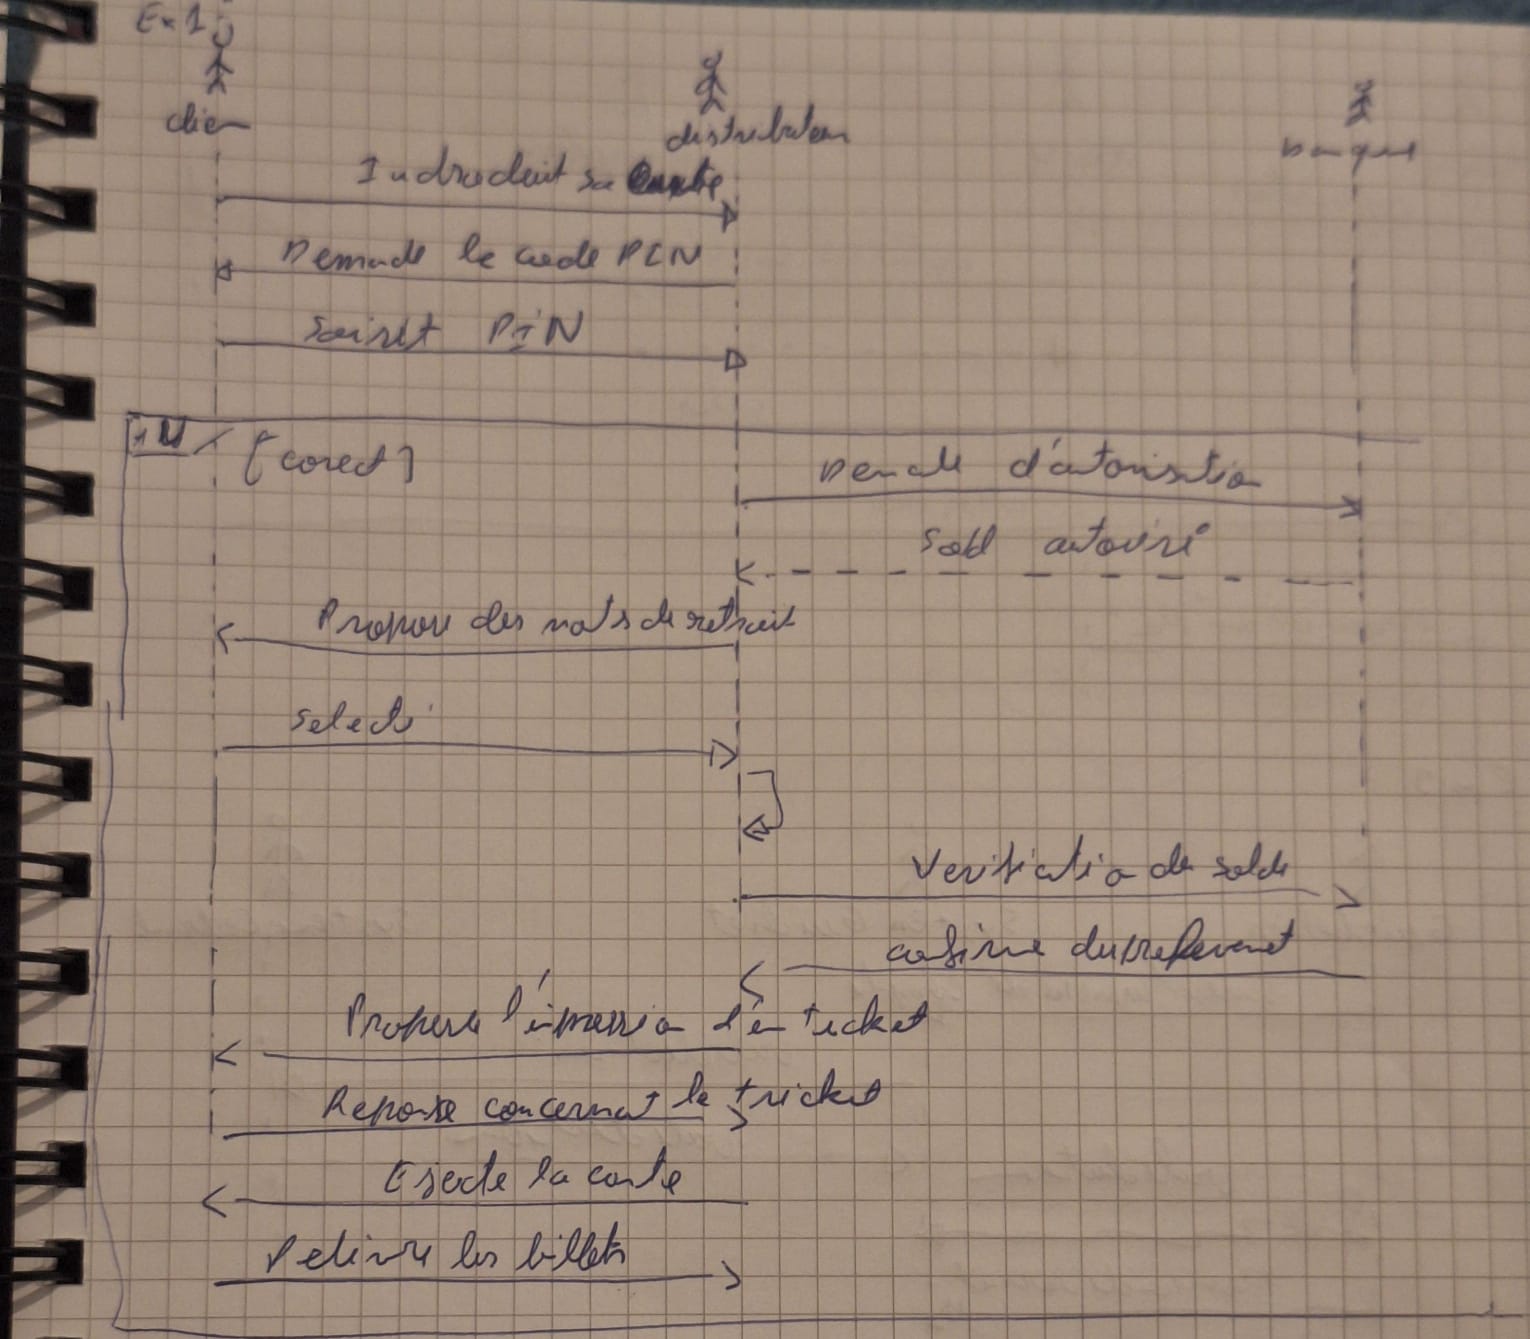 Ex 1:
clien
distributeur
banque
Indroduit sa carte
Demade le code PIN
Saisit PIN
[corect]
Demade d'autorisation
Sold autorisé
Propose des mots de retrait
Selecti
Verification de solde
confirme du prelevement
Propose l'impression d'un ticket
Reponse concernat le tricket
Ejecte la carte
Delivre les billets